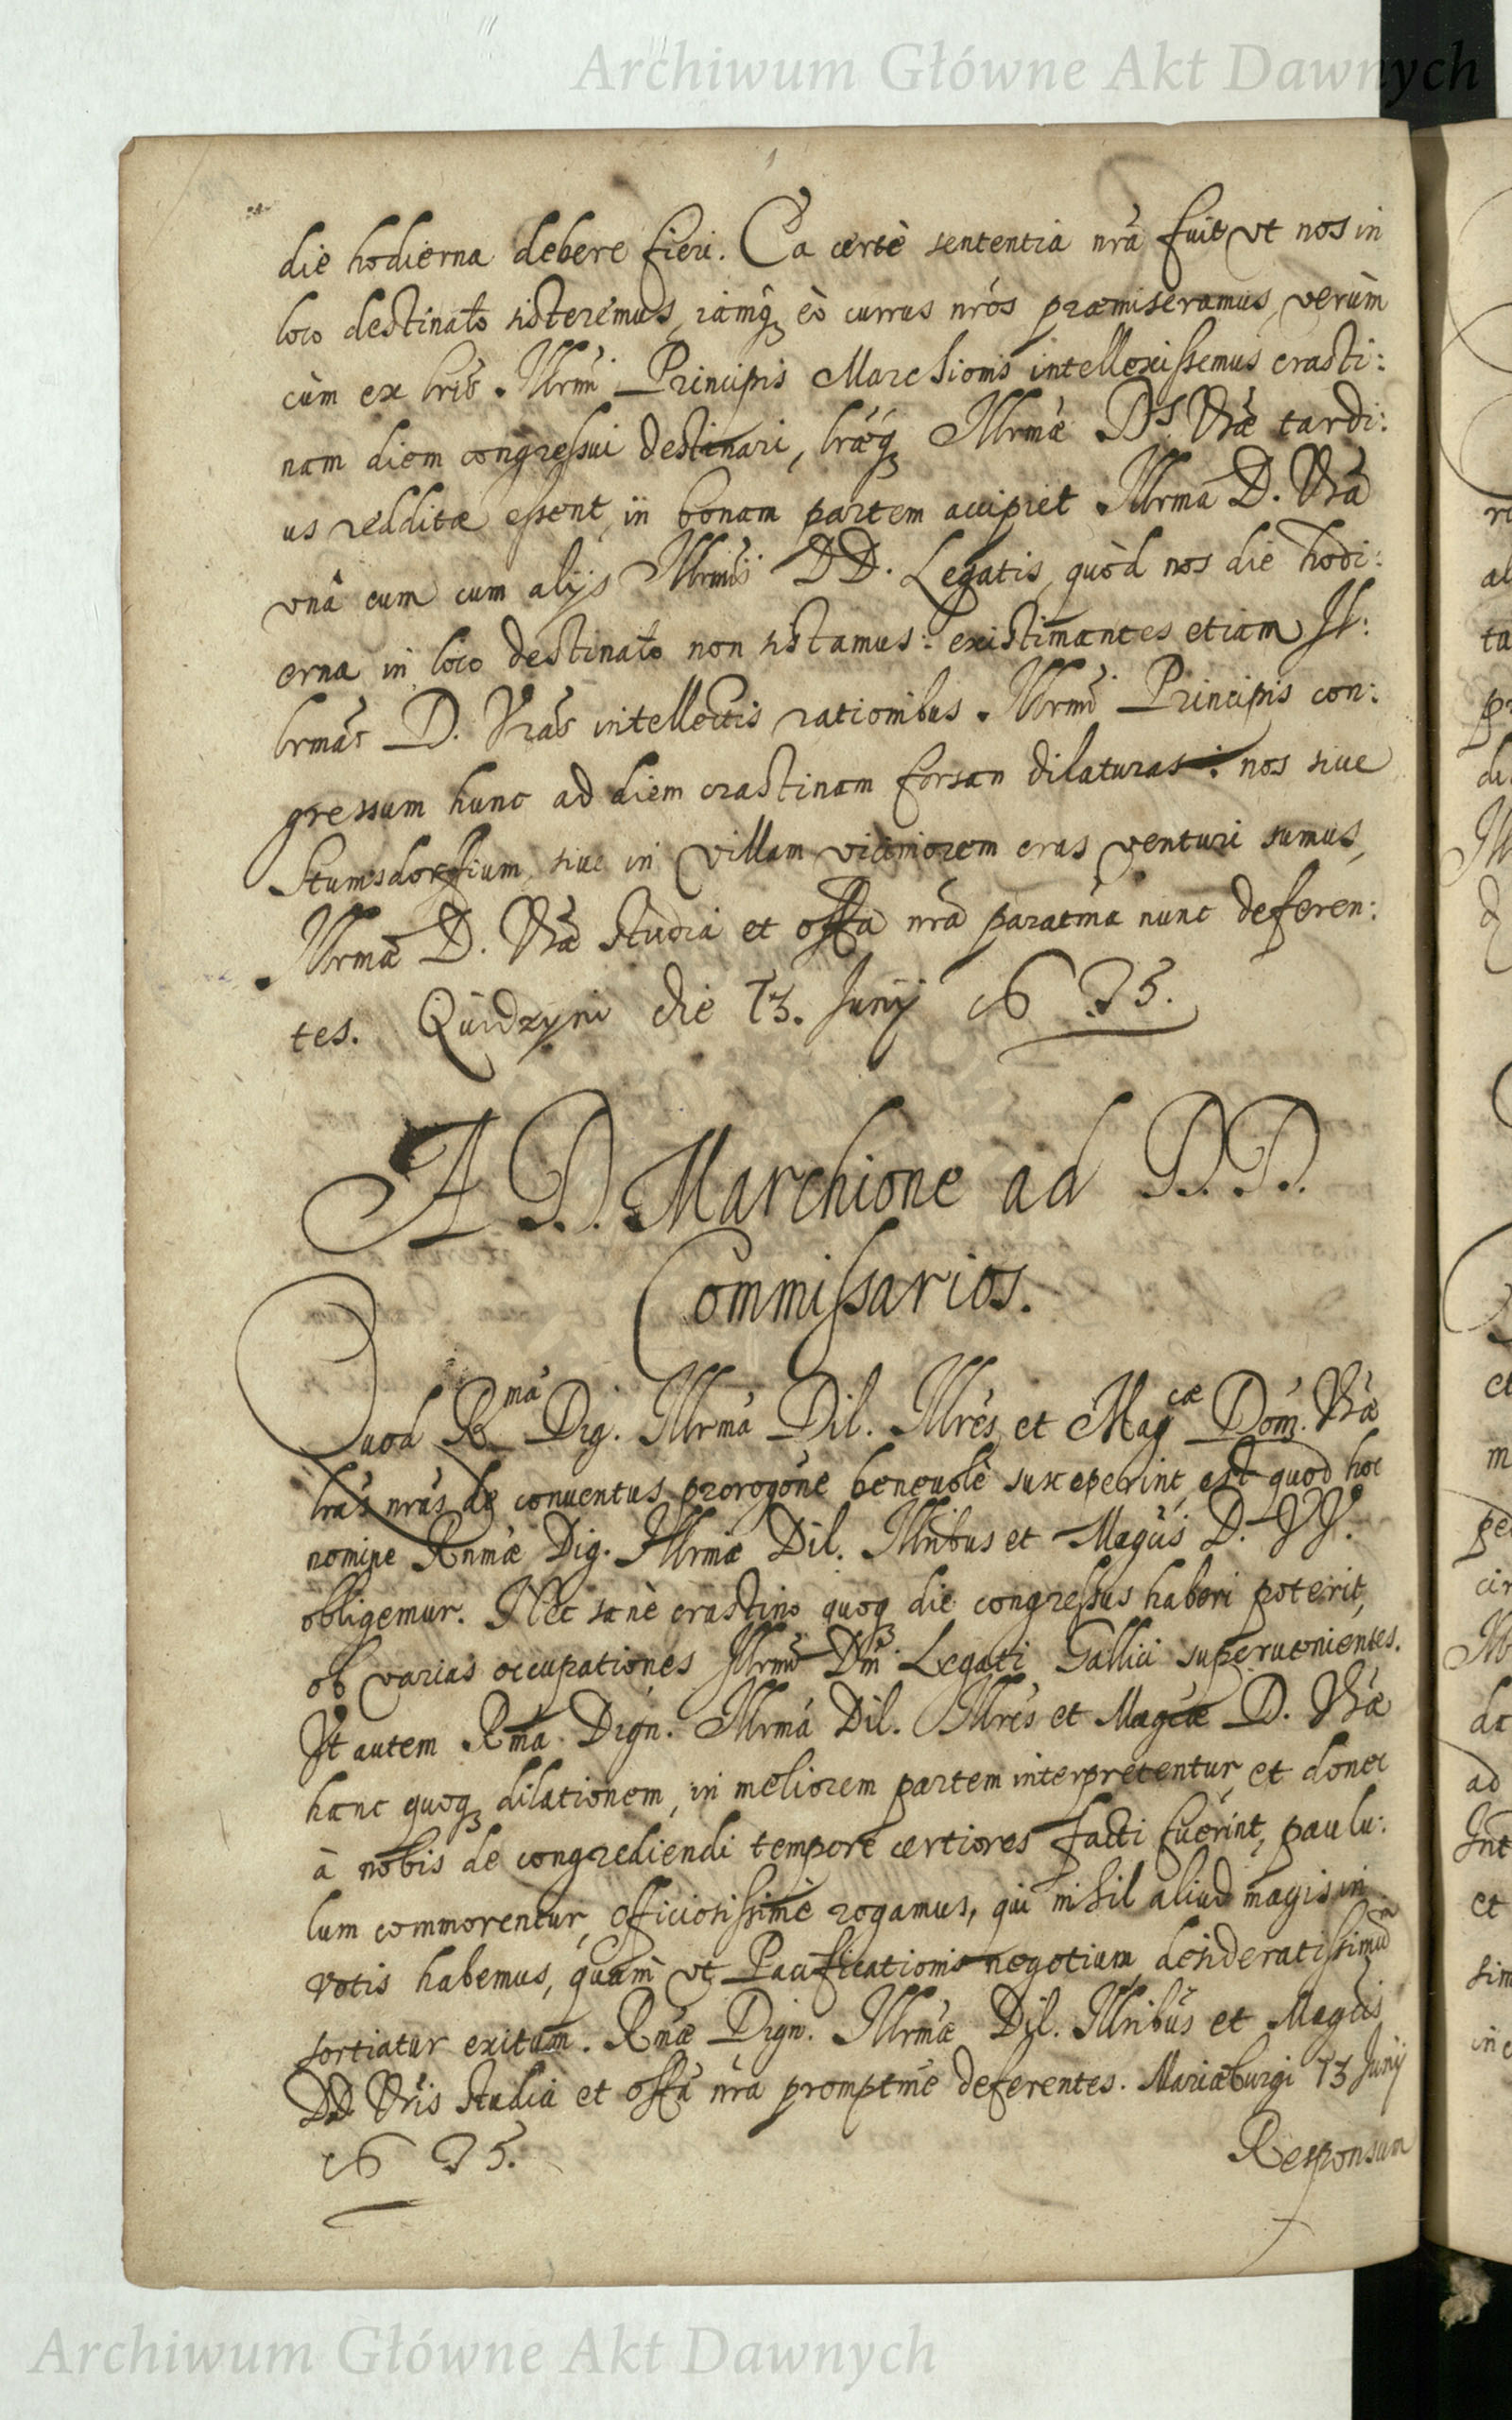 Archiwum Główne Akt Dawnych
die hodierna debere fieri. Ea certè sententia nrã fuit vt nos in
loco destinato sisteremus, iamq; eò currus nrós præmiseramus, verùm
cùm ex lris Illrmi Principis Marchionis intellexissemus crasti:
nam diem congressui destinari, lræq; Illrmæ Ds Vræ tardi:
us redditæ essent, in bonam partem accipiet Illrma D. Vra
vnâ cum cum alijs Illrmis DD. Legatis, quòd nos die hodi:
erna in loco destinato non sistamus: existimantes etiam Il:
lrmas D. Vras intellectis rationibus Illrmi Principis con:
gressum hunc ad diem crastinam forsan dilaturas: nos siue
Stumsdorffium, siue in villam viciniorem cras venturi sumus,
Illrmæ D. Vræ studia et offa nra paratma nunc deferen:
tes. Quidzyni die 13. Junij 1635.
A D. Marchione ad DD.
Commissarios.
Quod Rma Dig. Illrma Dil. Illres et Magcæ Dom. Vræ
lras nras de conuentus prorogone beneuolè susceperint, est quod hoc
nomine Rnmæ Dig. Illrmæ Dil. Illribus et Magcis D. VV.
obligemur. Nec sanè crastino quoq; die congressus haberi poterit,
ob varias occupationes Illrmi Dni Legati Gallici superuenientes.
Vt autem Rma Dign. Illrma Dil. Illres et Magcæ D. Vræ
hanc quoq; dilationem, in meliorem partem interpretentur, et donec
à nobis de congrediendi tempore certiores facti fuerint, paulu:
lum commorentur, officiosissimè rogamus, qui nihil aliud magis in
votis habemus, quàm vt Pacificationis negotium desideratissimũ
sortiatur exitum. Rmæ Dign. Illrmæ Dil. Illribus et Magcis
DD Vris studia et offa nra promptme deferentes. Mariæburgi 13 Junij
1635.
Responsum
Archiwum Główne Akt Dawnych